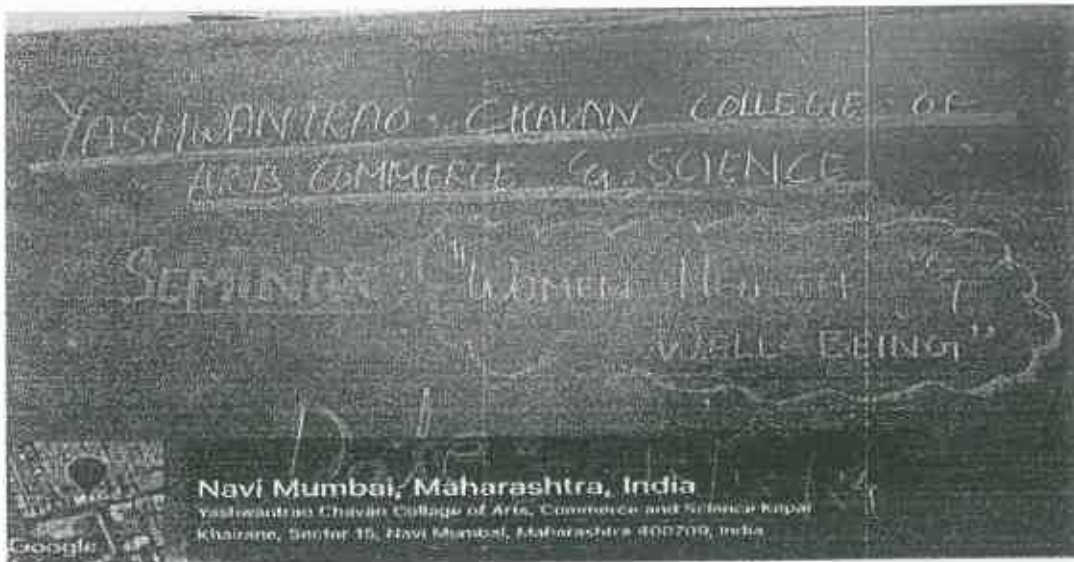 YASHWANTRAO CHAVAN COLLEGE OF
ARTS COMMERCE & SCIENCE
SEMINAR "WOMEN HEALTH &
WELL BEING"
Date
Navi Mumbai, Maharashtra, India
Yashwantrao Chavan Collage of Arts, Commerce and Science Kopar
Khairane, Sector 15, Navi Mumbai, Maharashtra 400709, India
Google